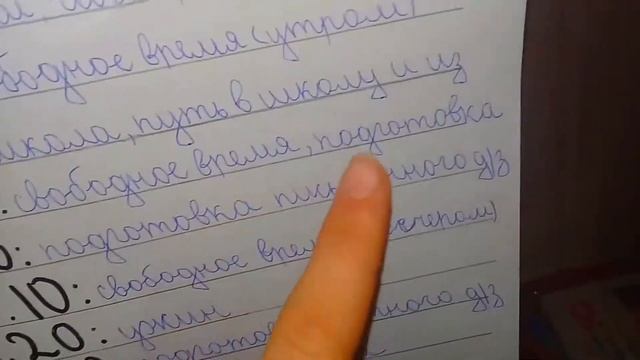 свободное время (утром)
школа, путь в школу и из
свободное время, подготовка
0: подготовка д/з
10: свободное время вечером)
20: ужин
д/з